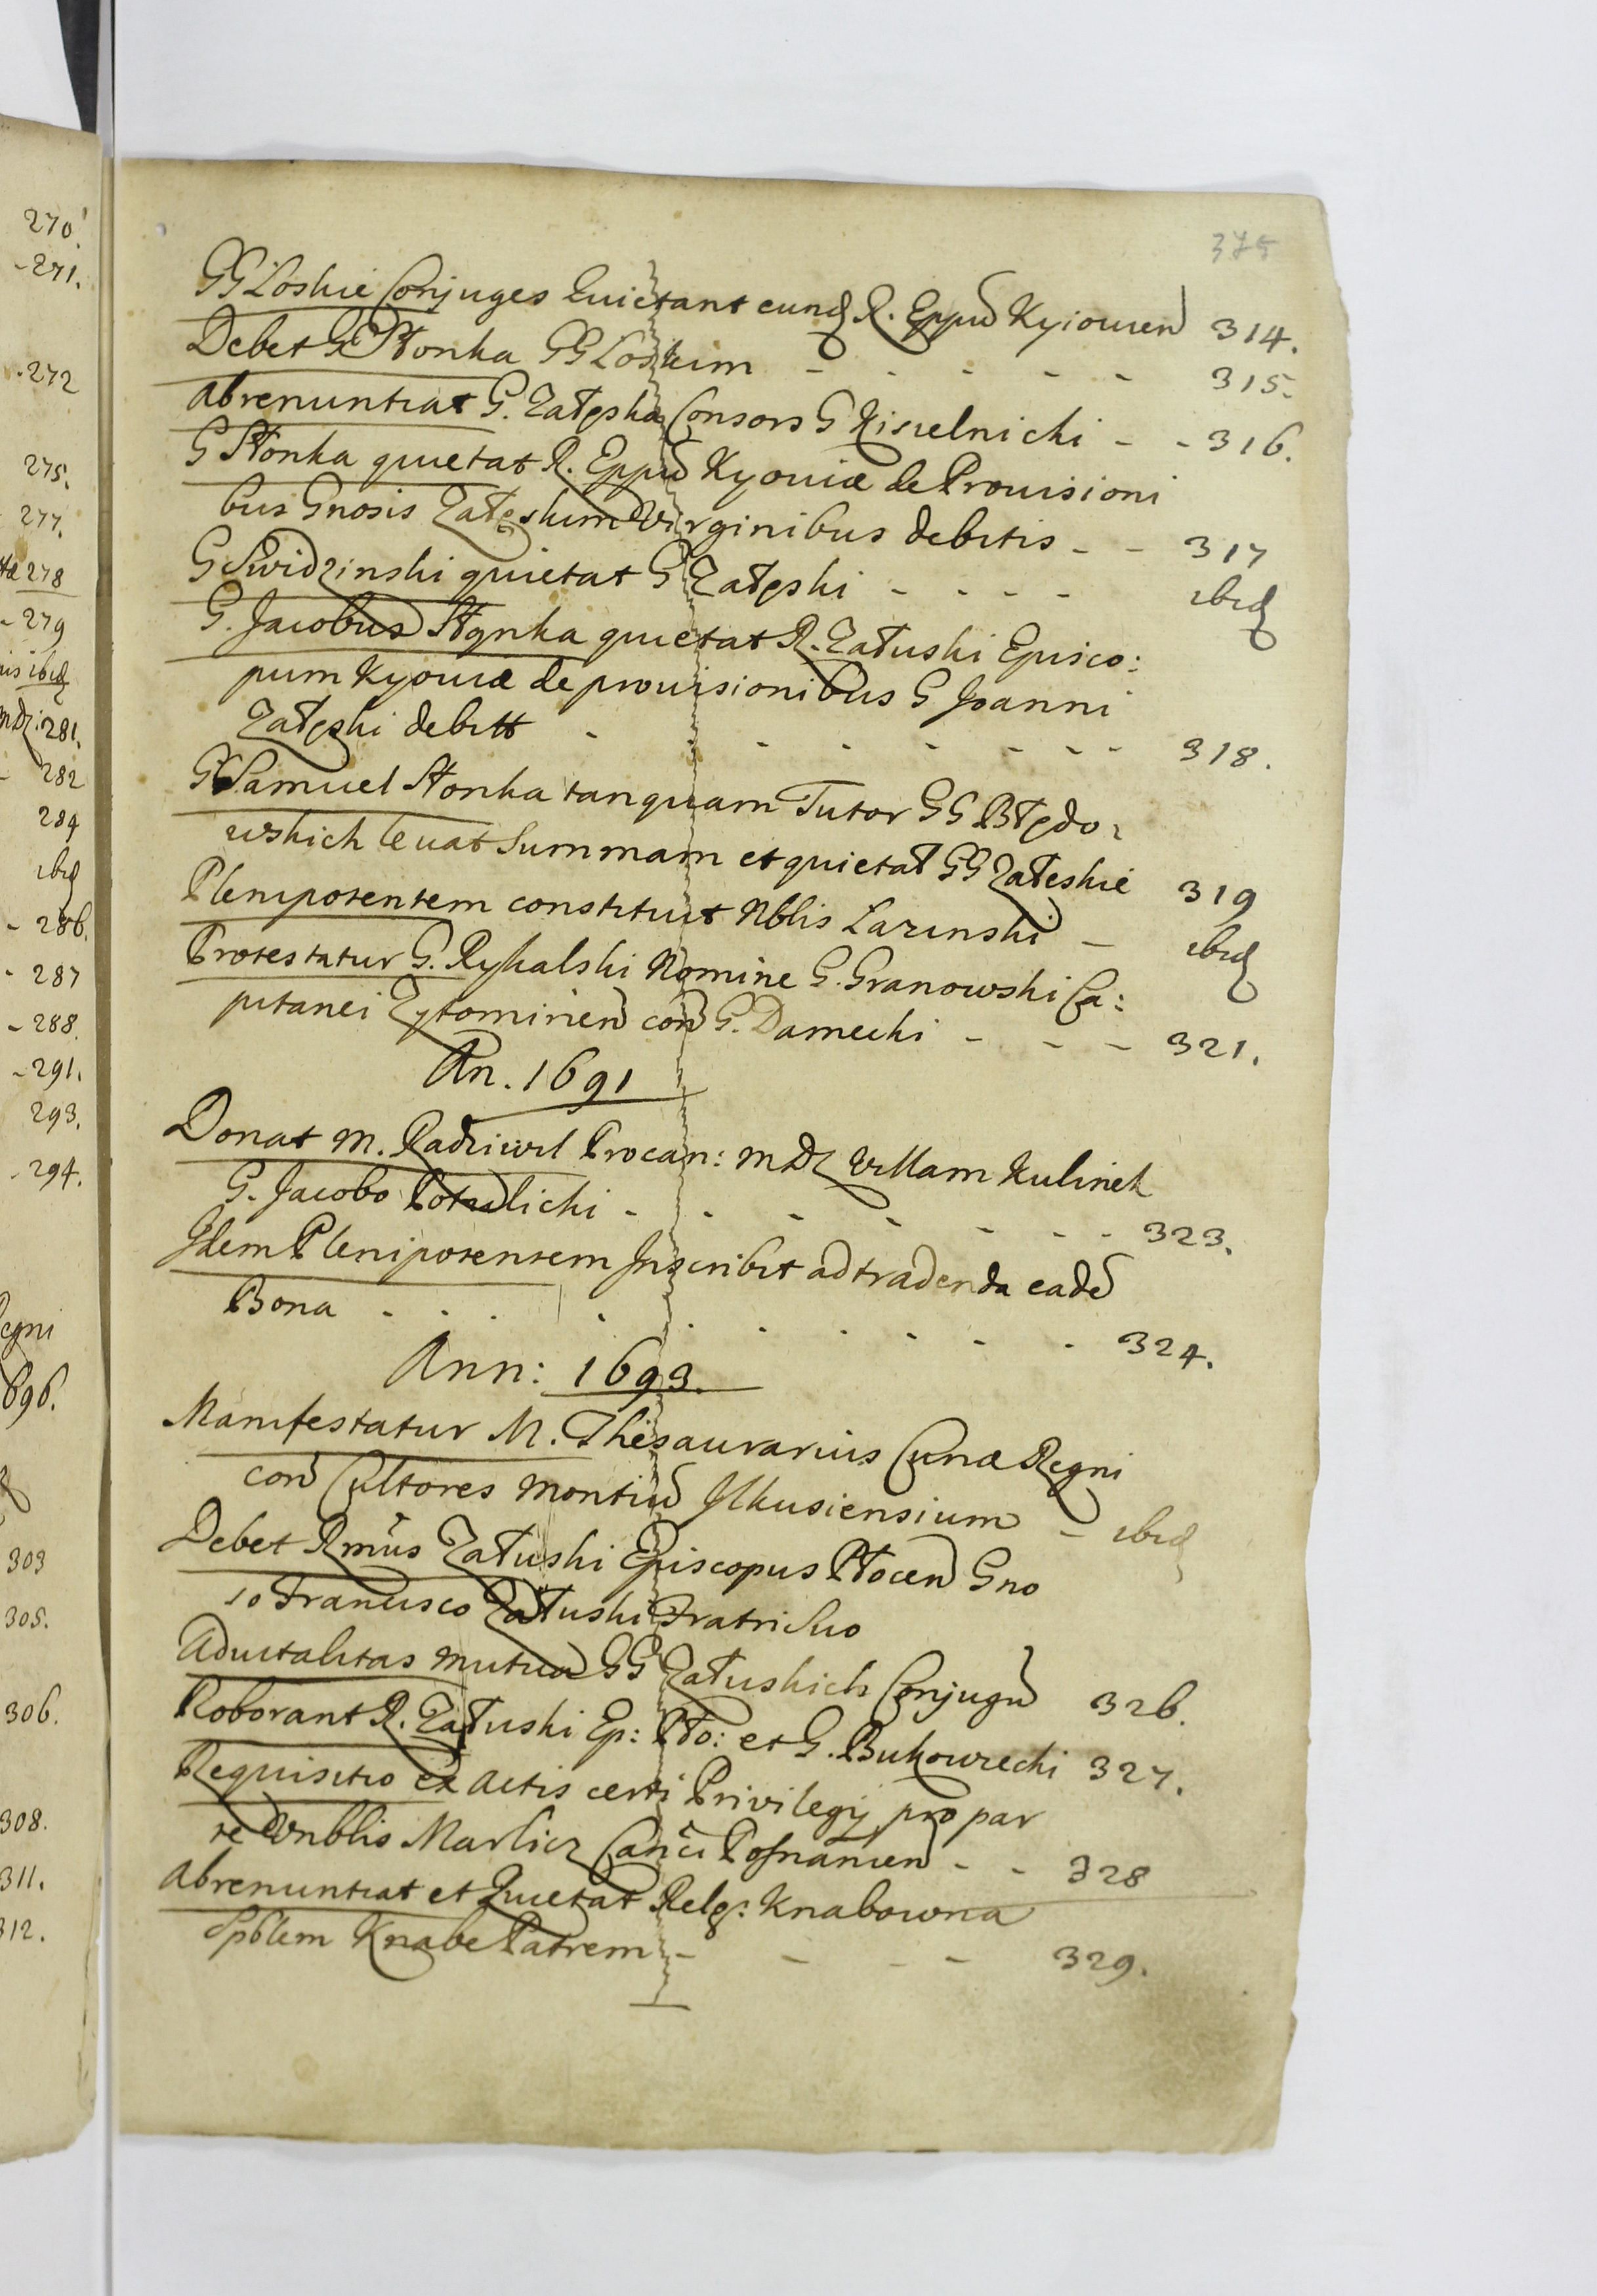 270.
-271.
-272
275.
277.
278
-279
ibid
281.
282
284
ibid
- 286.
- 287
- 288.
- 291.
293.
- 294.
Regni
696.
303
305.
306.
308.
311.
312.
375
GG Loskie Conjuges Quietant eund R. Eppū Kyiouien 314.
Debet G. Płonka GG Loskim - - - - - 315.
Abrenuntiat G. Załęska Consors G Kisielnicki - - 316.
G Płonka quietat R. Eppū Kyouiæ de Prouisioni
bus Gnosis Załęskim Virginibus debitis - - 317
G Swidzinski quietat G Załęski - - - - ibid
G. Jacobus Płonka quietat R. Załuski Episco:
pum Kyouiæ de prouisionibus G Joanni
Załęski debitt - - - - - - - - 318.
G Samuel Płonka tanquam Tutor GG Błędo-
wskich leuat Summam et quietat GG Załeskie 319
Plenipotentem constituit Nblis Lazinski - ibid
Protestatur G. Rykalski Nomine G. Granowski Ca:
pitanei Zytomirien con G. Damecki - - - 321.
An. 1691
Donat M. Radziwil Procan: MDL Villam Kulinek
G. Jacobo Potulicki - - - - - - - 323.
Idem Plenipotentem Inscribit ad tradenda eadē
Bona - - - - - - - - - - 324.
Ann: 1693.
Manifestatur M. Thesaurarius Curiæ Regni
con Cultores Montiū Ilkusiensium - ibid
Debet Rmus Załuski Episcopus Płocen Gno
so Francisco Załuski Fratri Suo
Aduitalitas mutua GG Załuskich Conjugū 326.
Roborant R. Załuski Ep: Pło: et G. Bukowiecki 327.
Requisitio ex Actis certi Privilegij pro par
te Vnblis Marlicz Canci Posnanien - - 328
Abrenuntiat et Quietat Relg: Knabowna
Spblem Knabe Patrem - - - - 329.